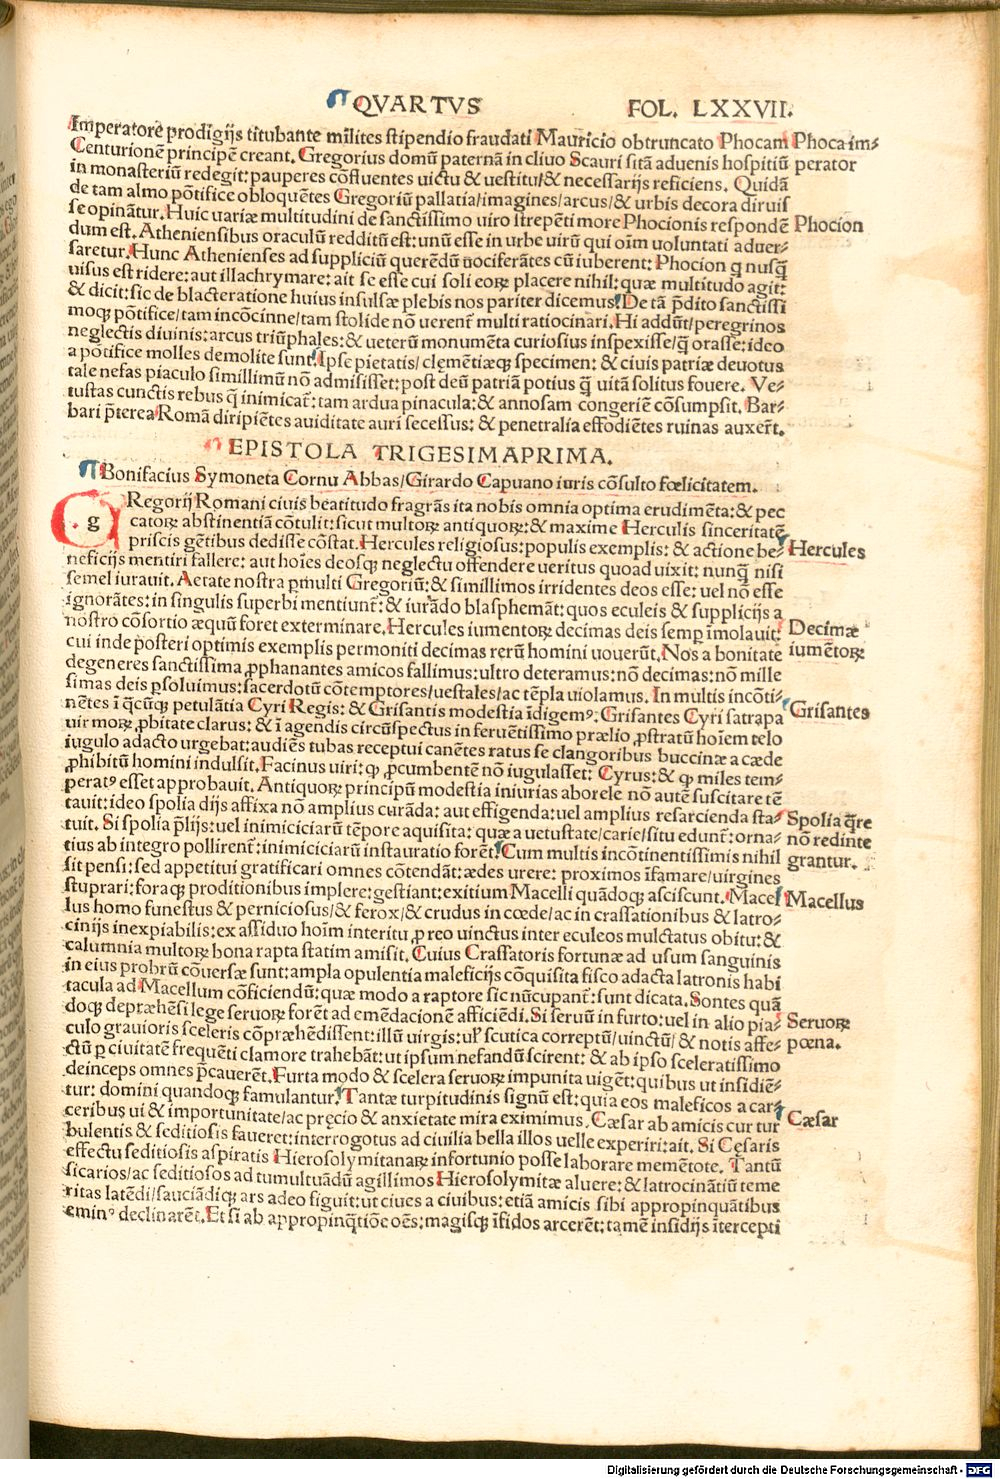 QVARTVS FOL. LXXVII.
Imperatorē prodigijs titubante milites stipendio fraudati Mauricio obtruncato Phocam Phoca im⸗
Centurionē principē creant. Gregorius domū paternā in cliuo Scauri sitā aduenis hospitiū perator
in monasteriū redegit: pauperes cōfluentes uictu & uestitu/& necessarijs reficiens. Quidā
de tam almo pōtifice obloquētes Gregoriū pallatia/imagines/arcus/& urbis decora diruis
se opinātur. Huic uariæ multitudini de sanctissimo uiro strepēti more Phocionis respondē Phocion
dum est. Atheniensibus oraculū redditū est: unū esse in urbe uirū qui oīm uoluntati aduer⸗
saretur. Hunc Athenienses ad suppliciū querēdū uociferātes cū iuberent: Phocion q nusq̄
uisus est ridere: aut illachrymare: ait se esse cui soli eoꝝ placere nihil: quæ multitudo agit:
& dicit: sic de blacteratione huius insulsæ plebis nos pariter dicemus. De tā p̄dito sanctissi
moq; pōtifice/tam incōcinne/tam stolide nō uerent̄ multi ratiocinari. Hi addūt/peregrinos
neglectis diuinis: arcus triūphales: & ueterū monumēta curiosius inspexisse/q̄ orasse: ideo
a pōtifice molles demolite sunt. Ipse pietatis/clemētiæq; specimen: & ciuis patriæ deuotus
tale nefas piaculo simillimū nō admisisset: post deū patriā potius q̄ uitā solitus fouere. Ve⸗
tustas cunctis rebus q̄ inimicat̄: tam ardua pinacula: & annosam congeriē cōsumpsit. Bar⸗
bari p̄terea Romā diripiētes auiditate auri secessus: & penetralia effodiētes ruinas auxer̄t.
EPISTOLA TRIGESIMAPRIMA.
Bonifacius Symoneta Cornu Abbas/Girardo Capuano iuris cōsulto fœlicitatem.
g Regorij Romani ciuis beatitudo fragrās ita nobis omnia optima erudimēta: & pec
catoꝝ abstinentiā cōtulit: sicut multoꝝ antiquoꝝ: & maxime Herculis sinceritatē
priscis gētibus dedisse cōstat. Hercules religiosus: populis exemplis: & actione be⸗ Hercules
neficijs mentiri fallere: aut hoīes deosq; neglectu offendere ueritus quoad uixit: nunq̄ nisi
semel iurauit. Aetate nostra p̄multi Gregoriū: & simillimos irridentes deos esse: uel nō esse
ignorātes: in singulis superbi mentiunt̄: & iurādo blasphemāt: quos eculeis & supplicijs a
nostro cōsortio æquū foret exterminare. Hercules iumentoꝝ decimas deis semp īmolauit: Decimæ
cui inde posteri optimis exemplis permoniti decimas rerū homini uouerūt. Nos a bonitate iumētoꝝ
degeneres sanctissima ꝓphanantes amicos fallimus: ultro deteramus: nō decimas: nō mille
simas deis ꝑsoluimus: sacerdotū cōtemptores/uestales/ac tēpla uiolamus. In multis incōti⸗
nētes ī q̄cūq; petulātia Cyri Regis: & Grisantis modestia īdigemꝰ. Grisantes Cyri satrapa Grisantes
uir moꝝ ꝓbitate clarus: & ī agendis circūspectus in feruētissimo prælio ꝓstratū hoīem telo
iugulo adacto urgebat: audiēs tubas receptui canētes ratus se clangoribus buccinæ a cæde
ꝓhibitū homini indulsit. Facinus uiri: qꝫ ꝓcumbentē nō iugulasset: Cyrus: & qꝫ miles tem⸗
peratꝰ esset approbauit. Antiquoꝝ principū modestia iniurias aborele nō autē suscitare tē
tauit: ideo spolia dijs affixa nō amplius curāda: aut effigenda: uel amplius resarcienda sta⸗ Spolia q̄re
tuit. Si spolia p̄lijs: uel inimiciciarū tēpore aquisita: quæ a uetustate/carie/situ edunt̄: orna⸗ nō redinte
tius ab integro pollirent̄: inimiciciarū instauratio forēt. Cum multis incōtinentissimis nihil grantur.
sit pensi: sed appetitui gratificari omnes cōtendāt: ædes urere: proximos īfamare/uirgines
stuprari: foraq; proditionibus implere: gestiant: exitium Macelli quādoq; asciscunt. Macel Macellus
lus homo funestus & perniciosus/& ferox/& crudus in cœde/ac in crassationibus & latro⸗
cinijs inexpiabilis: ex assiduo hoīm interitu ꝓ reo uinctus inter eculeos mulctatus obitu: &
calumnia multoꝝ bona rapta statim amisit. Cuius Crassatoris fortunæ ad usum sanguinis
in eius probrū cōuersæ sunt: ampla opulentia maleficijs cōquisita fisco adacta latronis habi
tacula ad Macellum cōficiendū: quæ modo a raptore sic nūcupant̄: sunt dicata. Sontes quā
doq; depræhēsi lege seruoꝝ forēt ad emēdacionē afficiēdi. Si seruū in furto: uel in alio pia⸗ Seruoꝝ
culo grauioris sceleris cōpræhēdissent: illū uirgis: ul' scutica correptū/uinctū/& notis affe⸗ pœna.
ctū ꝑ ciuitatē frequēti clamore trahebāt: ut ipsum nefandū scirent: & ab ipso sceleratissimo
deinceps omnes p̄cauerēt. Furta modo & scelera seruoꝝ impunita uigēt: quibus ut insidiē⸗
tur: domini quandoq; famulantur. Tantæ turpitudinis signū est: quia eos maleficos a car⸗
ceribus ui & importunitate/ac pręcio & anxietate mira eximimus. Cæsar ab amicis cur tur Cæsar
bulentis & seditiosis faueret: interrogotus ad ciuilia bella illos uelle experiri: ait. Si Cęsaris
effectu seditiosis aspiratis Hierosolymitanaꝝ infortunio posse laborare memētote. Tantū
sicarios/ac seditiosos ad tumultuādū agillimos Hierosolymitæ aluere: & latrocinātiū teme
ritas latēdi/sauciādiq; ars adeo figuit: ut ciues a ciuibus: etiā amicis sibi appropinquātibus
eminꝰ declinarēt. Et si ab appropinq̄tiōe oēs: magisq; īfidos arcerēt: tamē insidijs ītercepti
Digitalisierung gefördert durch die Deutsche Forschungsgemeinschaft - DFG